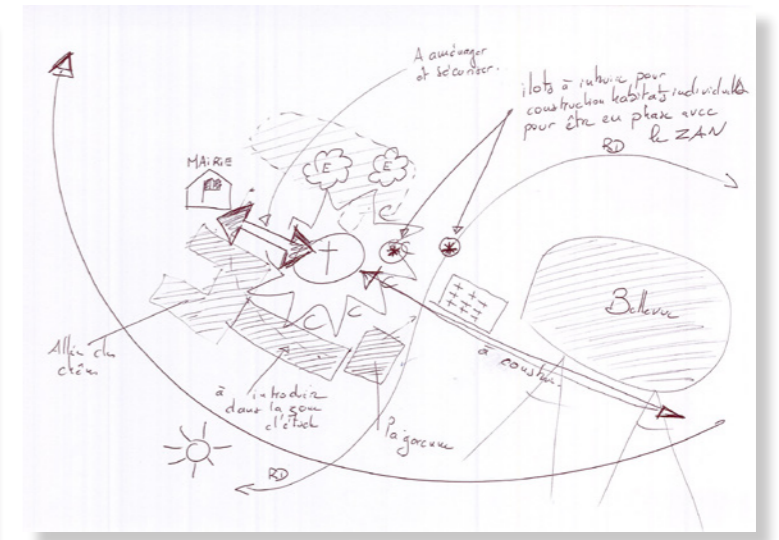 A aménager
et sécuriser.
ilots à intuire pour
construction habitat individuelle
pour être en phase avec
le ZAN
RD
MAIRIE
E
E
C
C
C
C
C
Bellevue
Allée du
chêne
à introduire
dans la zone
d'étude
à constru.
la garenne
RD